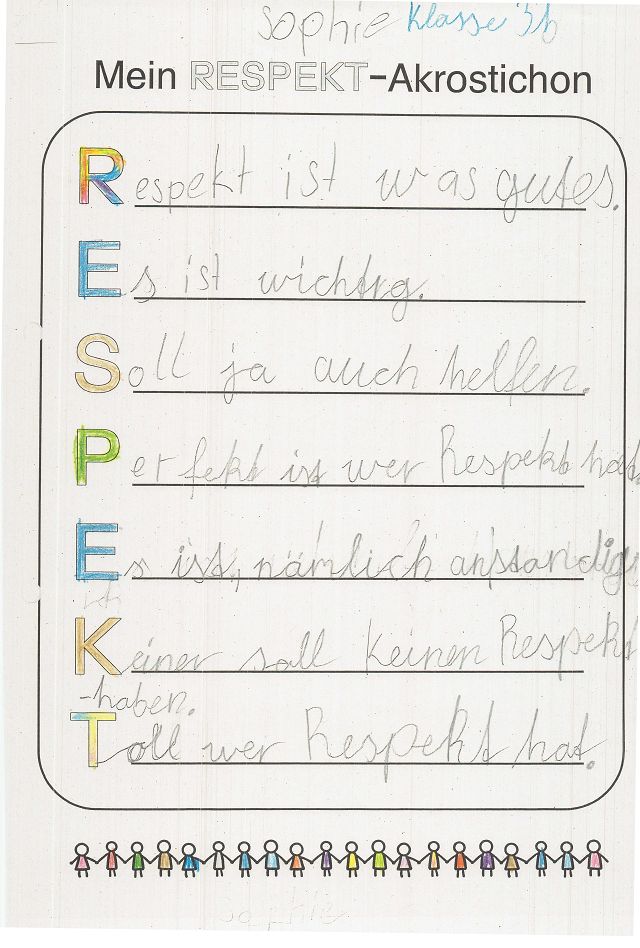 Sophie Klasse 3b
Mein RESPEKT-Akrostichon
Respekt ist was gutes.
Es ist wichtig.
Soll ja auch helfen.
Perfekt ist wer Respekt hat.
Es ist, nämlich anständig
Keiner soll keinen Respekt
-haben.
Toll wer Respekt hat.
Sophie